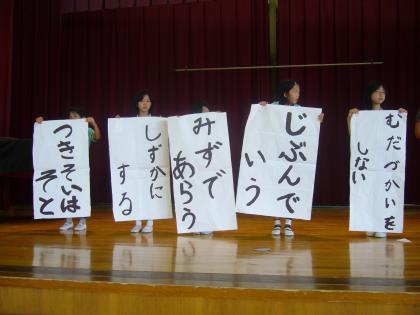 むだづかいを
しない
じぶんで
いう
みずで
あらう
しずかに
する
つきそいは
そと